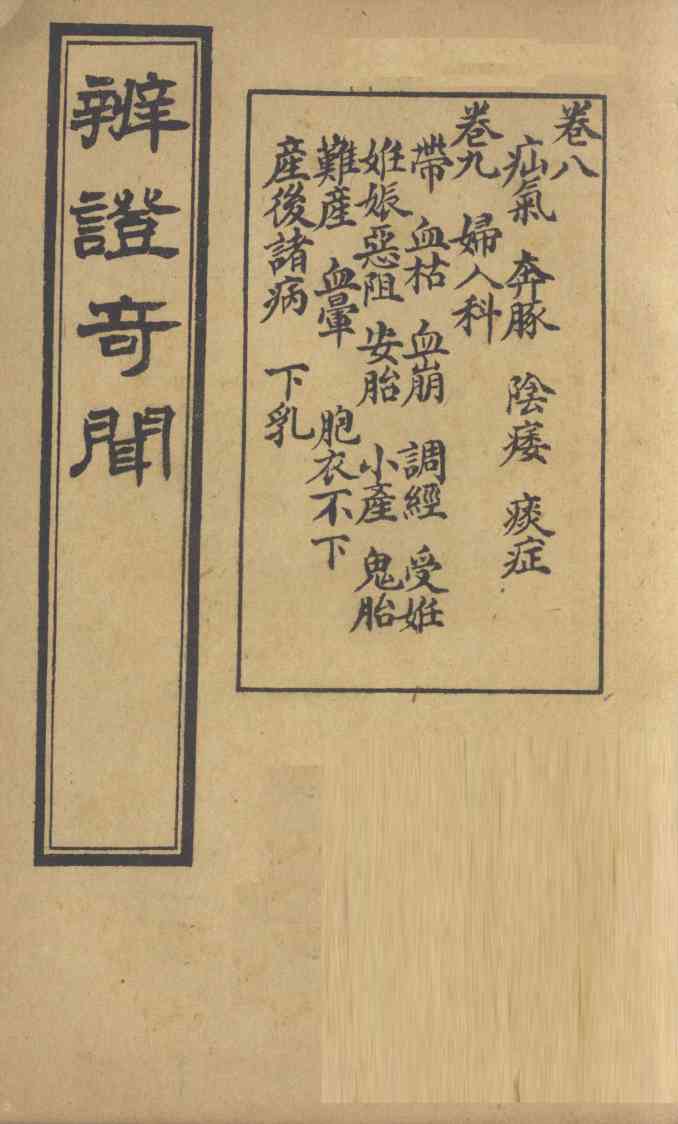 辨證奇聞
卷八
疝氣 奔豚 陰痿 痰症
卷九 婦人科
帶 血枯 血崩 調經 受姙
姙娠惡阻 安胎 小產 鬼胎
難産 血暈 胞衣不下
産後諸病 下乳